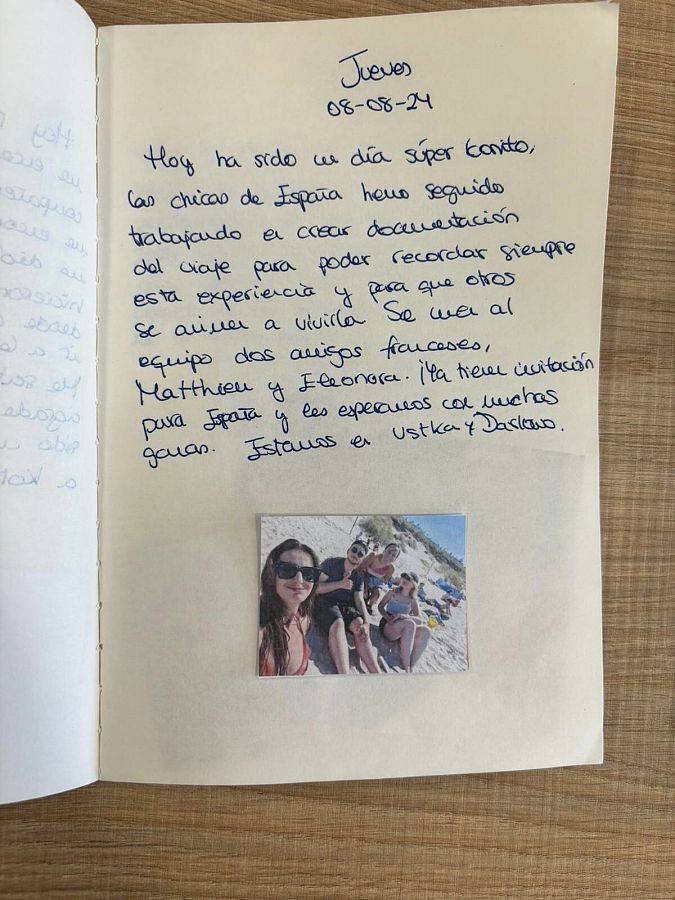 Jueves
08-08-24
Hoy ha sido un día súper bonito,
las chicas de España hemos seguido
trabajando en crear documentación
del viaje para poder recordar siempre
esta experiencia y para que otros
se animen a vivirla Se unen al
equipo dos amigos franceses,
Matthieu y Eleonora. ¡Ya tienen invitación
para España y les esperamos con muchas
ganas. Estamos en Ustka y Darłowo.